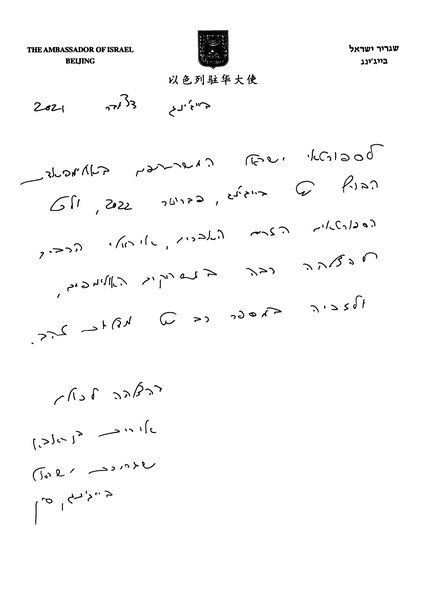 THE AMBASSADOR OF ISRAEL
BEIJING
שגריר ישראל
בייג'ינג
以色列驻华大使
בייג'ינג דצמבר 2021
לספורטאי ישראל המשתתפים באולימפיאדת
החורף של בייג'ינג, פברואר 2022, ולכל
הספורטאים הזרים האחרים, איחולי
להצלחה רבה במשחקים האולימפיים,
ולזכיה במספר רב של מדליות זהב.
בהצלחה לכולם
אירית בן-אבא
שגרירת ישראל
בייג'ינג, סין